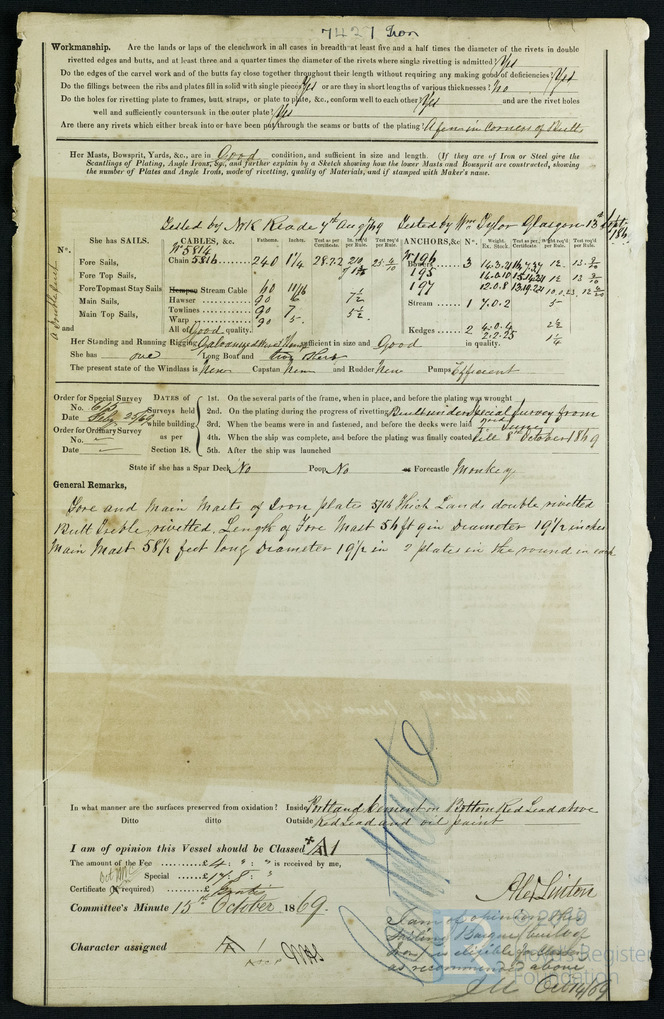 7427 Iron
Workmanship. Are the lands or laps of the clenchwork in all cases in breadth at least five and a half times the diameter of the rivets in double
rivetted edges and butts, and at least three and a quarter times the diameter of the rivets where single rivetting is admitted? Yes
Do the edges of the carvel work and of the butts fay close together throughout their length without requiring any making good of deficiencies? Yes
Do the fillings between the ribs and plates fill in solid with single pieces? Yes or are they in short lengths of various thicknesses? No
Do the holes for rivetting plate to frames, butt straps, or plate to plate, &c., conform well to each other? Yes and are the rivet holes
well and sufficiently countersunk in the outer plate? Yes
Are there any rivets which either break into or have been put through the seams or butts of the plating? A few in corners of Butts
Her Masts, Bowsprit, Yards, &c., are in Good condition, and sufficient in size and length. (If they are of Iron or Steel give the
Scantlings of Plating, Angle Irons, &c., and further explain by a Sketch showing how the lower Masts and Bowsprit are constructed, showing
the number of Plates and Angle Irons, mode of rivetting, quality of Materials, and if stamped with Maker's name.
Tested by 7th Aug /69 Tested by Wm Tylor Glasgow 13th
N°. She has SAILS. CABLES, &c. Fathoms. Inches. ANCHORS, &c N°.
No 5814
Fore Sails, Chain 5816 240 1 1/4 28.7.2 No 196 Bowers 3
Fore Top Sails, 195
Fore Topmast Stay Sails Hempen Stream Cable 60 11/16 197
Main Sails, Hawser 90 6 7 1/2 Stream 1 7.0.2 5
Main Top Sails, Towlines 90 7 5 1/2
Warp 90 5 Kedges 2 4.0.4 2 1/2
and All of Good quality. 2.2.25 1 1/4
Her Standing and Running Rigging Galvanized Wire & Hemp sufficient in size and Good in quality.
She has one Long Boat and two others
The present state of the Windlass is New Capstan New and Rudder New Pumps Efficient
Order for Special Survey DATES of 1st. On the several parts of the frame, when in place, and before the plating was wrought
No. Surveys held 2nd. On the plating during the progress of rivetting Built under Special Survey from
Date Feby 25/69 while building 3rd. When the beams were in and fastened, and before the decks were laid June
Order for Ordinary Survey as per 4th. When the ship was complete, and before the plating was finally coated till 8th October 1869
No. Section 18. 5th. After the ship was launched
Date
State if she has a Spar Deck No Poop No or Forecastle Monkey
General Remarks,
Fore and Main Masts of Iron plates 5/16 thick Lands double rivetted
Butt Treble rivetted. Length of Fore Mast 56 ft 9 in Diameter 19 1/2 inches
Main Mast 58 1/2 feet long Diameter 19 1/2 in 2 plates in the round in each
In what manner are the surfaces preserved from oxidation? Inside Portland Cement on Bottom Red Lead above
Ditto ditto Outside Red Lead and oil paint
I am of opinion this Vessel should be Classed A1
The amount of the Fee £ 4 : " : " is received by me,
Special £ 17 : 8 : "
Certificate (if required) £ Gratis
Alex Linton
Committee's Minute 15th October 1869.
I am of opinion this
is eligible
as recommended above
Character assigned A
Oct 14/69
Lloyd's Register
Foundation